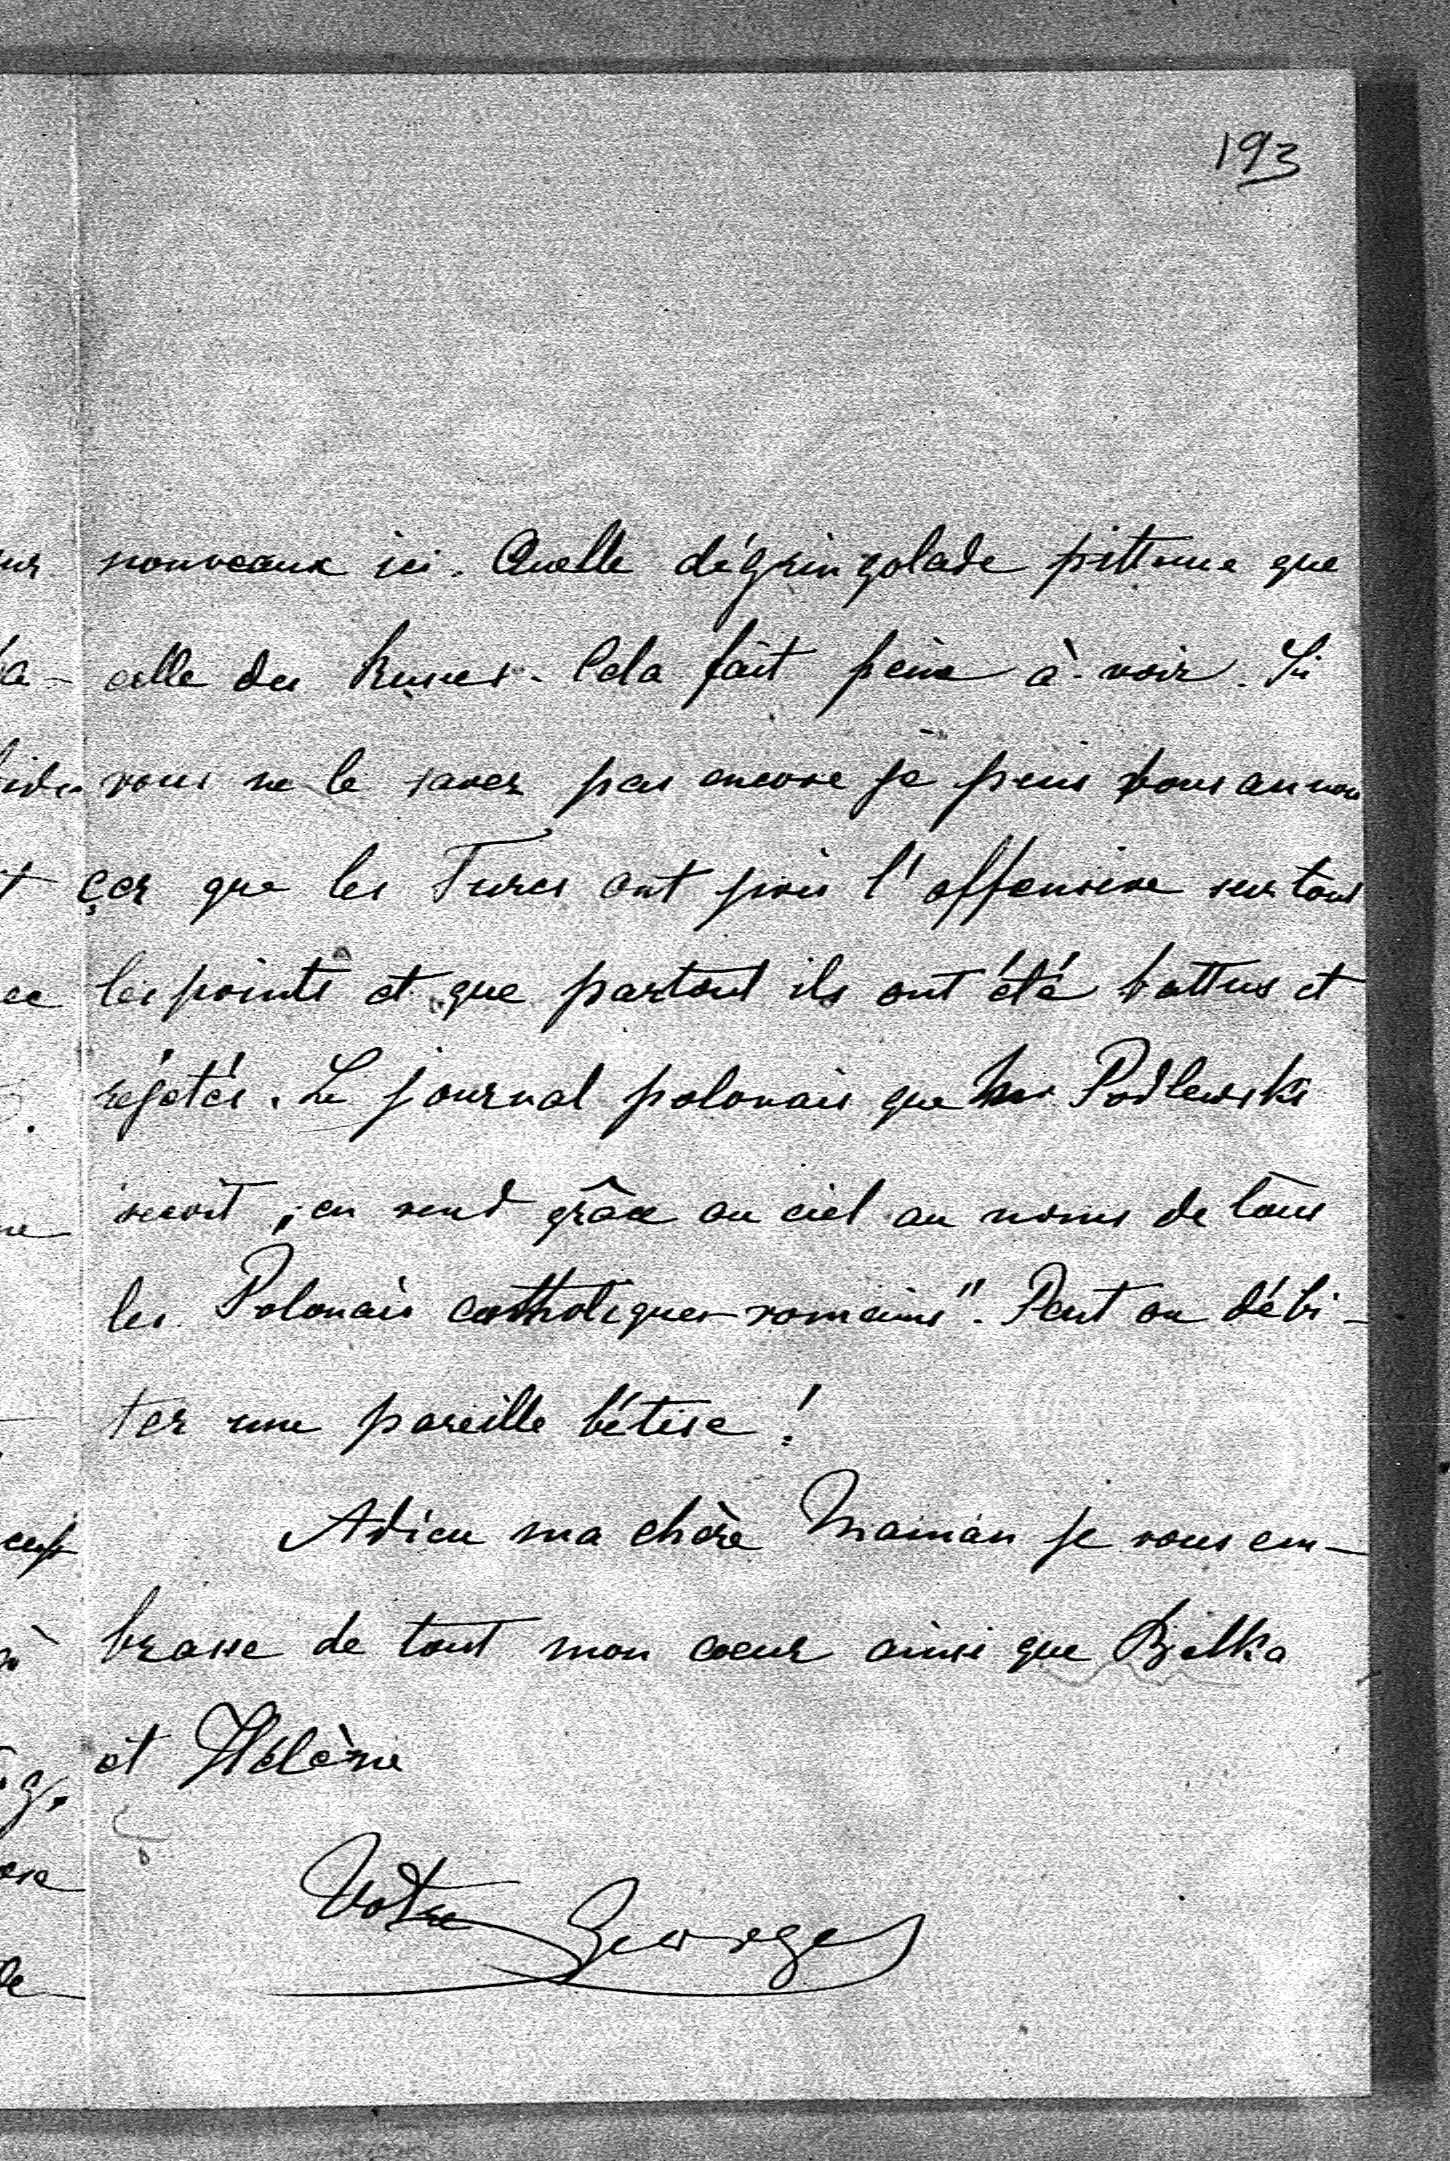 193
nouveaux ici. Quelle dégringolade piteuse que
celle des Russes. Cela fait peine à voir. Si
vous ne le savez pas encore je puis vous annon
çer que les Turcs ont pris l'offensive sur tous
les points et que partout ils ont été battus et
réjetés. Le journal polonais que Mr Podlewski
reçoit, en rend grâce au ciel au noms de tous
les Polonais catholiques-romains". Peut on débi-
ter une pareille bétise!
Adieu ma chère Maman je vous em-
brasse de tout mon coeur ainsi que Bjelka
et Hélène
Votre Georges